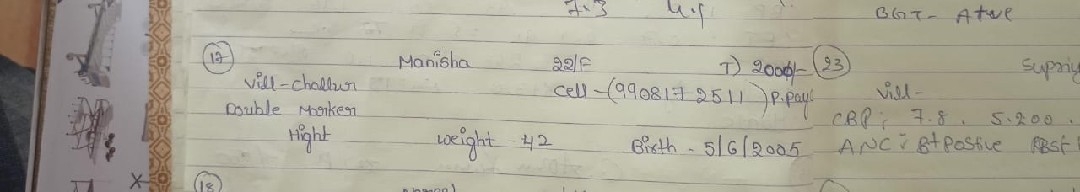 7.3
BGT- A+ve
17 Manisha 22/F T) 2000/-
vill-challur cell-(9908172511) P.pay
Double Marker
Hight weight 42 Birth - 5/6/2005
18
23
vill-
CBP; 7.8, 5.200.
ANC: B+Postive